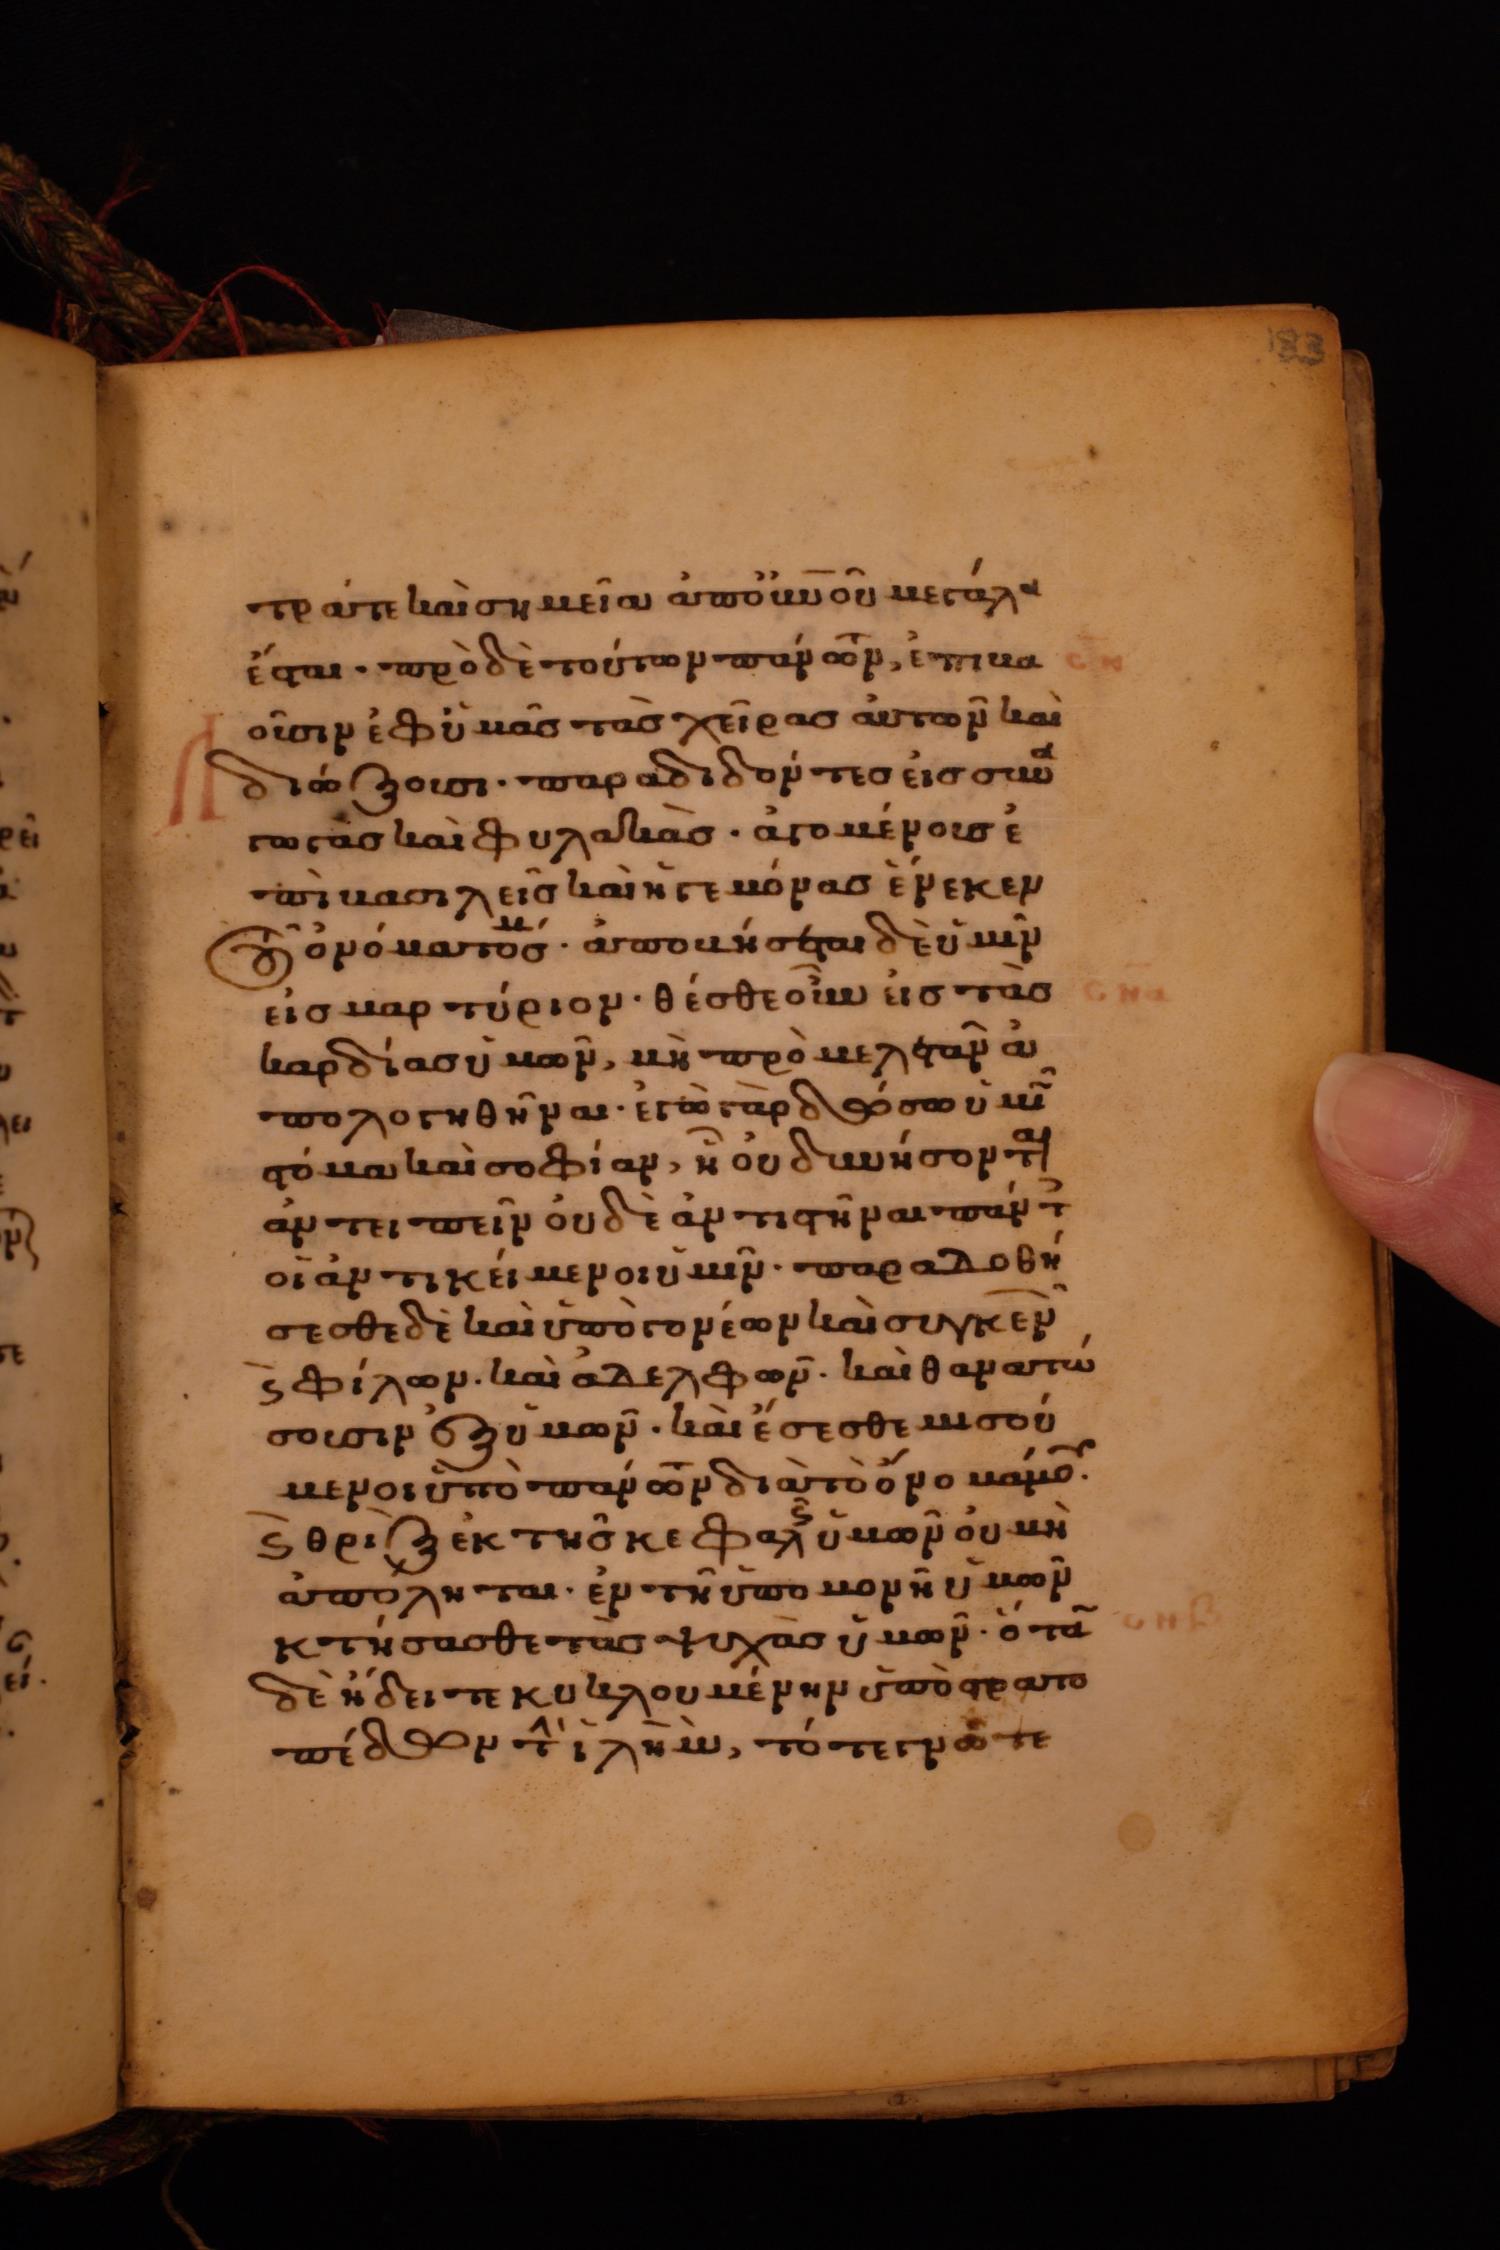 183
τρά τε καὶ σημεῖα ἀπ' οὐνοῦ μεγάλα
ἔσται · πρὸ δὲ τούτων πάντων, ἐπιβα
λοῦσιν ἐφ' ὑμᾶς τὰς χεῖρας αὐτῶν καὶ
διώξουσι · παραδιδόντες εἰς συνα
γωγὰς καὶ φυλακὰς · ἀγομένους ἐ
πὶ βασιλεῖς καὶ ἡγεμόνας ἕνεκεν
τοῦ ὀνόματός μου · ἀποβήσεται δὲ ὑμῖν
εἰς μαρτύριον · θέσθε οὖν εἰς τὰς
καρδίας ὑμῶν, μὴ προμελετᾶν ἀ
πολογηθῆναι · ἐγὼ γὰρ δώσω ὑμῖν
στόμα καὶ σοφίαν, ᾗ οὐ δυνήσονται
ἀντειπεῖν οὐδὲ ἀντιστῆναι πάντες
οἱ ἀντικείμενοι ὑμῖν · παραδοθή
σεσθε δὲ καὶ ὑπὸ γονέων καὶ συγγενῶν
καὶ φίλων · καὶ ἀδελφῶν · καὶ θανατώ
σουσιν ἐξ ὑμῶν · καὶ ἔσεσθε μισού
μενοι ὑπὸ πάντων διὰ τὸ ὄνομά μου ·
καὶ θρὶξ ἐκ τῆς κεφαλῆς ὑμῶν οὐ μὴ
ἀπόληται · ἐν τῇ ὑπομονῇ ὑμῶν
κτήσασθε τὰς ψυχὰς ὑμῶν · ὅταν
δὲ ἴδητε κυκλουμένην ὑπὸ στρατο
πέδων τὴν ἱλήμ, τότε γνῶτε
σν
σνα
σνβ